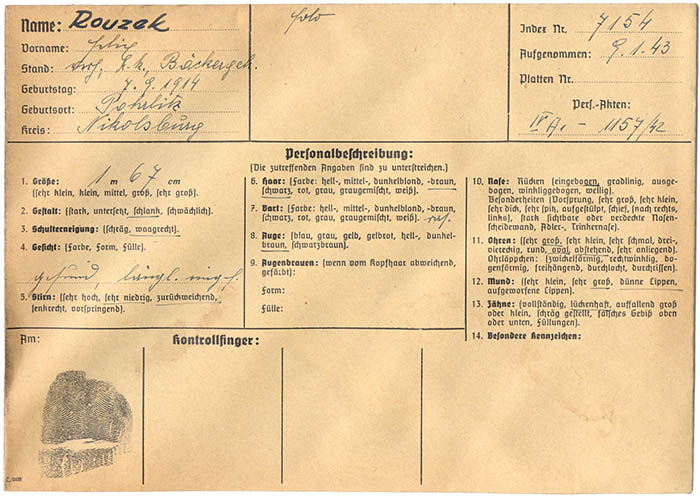 Name: Rouzek
Vorname: Felix
Stand: verh., k. k., Bäckergeh.
Geburtstag: 7. 9. 1914
Geburtsort: Pohrlitz
Kreis: Nikolsburg
foto
Index Nr. 7154
Aufgenommen: 9.1.43
Platten Nr.
Pers.-Akten:
IV A. - 1157/42
Personalbeschreibung:
(Die zutreffenden Angaben sind zu unterstreichen.)
1. Größe: 1 m 67 cm
(sehr klein, klein, mittel, groß, sehr groß).
2. Gestalt: (stark, untersetzt, schlank, schwächlich).
3. Schulterneigung: (schräg, waagrecht).
4. Gesicht: (Farbe, Form, Fülle).
gesund, längl.
5. Stirn: (sehr hoch, sehr niedrig, zurückweichend,
senkrecht, vorspringend).
6. Haar: (Farbe: hell-, mittel-, dunkelblond, -braun,
schwarz, rot, grau, graugemischt, weiß).
7. Bart: (Farbe: hell-, mittel-, dunkelblond, -braun,
schwarz, rot, grau, graugemischt, weiß).
8. Auge: (blau, grau, gelb, gelbrot, hell-, dunkel-
braun, schwarzbraun).
9. Augenbrauen: (wenn vom Kopfhaar abweichend,
gefärbt):
Form:
Fülle:
10. Nase: Rücken (eingebogen, gradlinig, ausge-
bogen, winkliggebogen, wellig).
Besonderheiten (Vorsprung, sehr groß, sehr klein,
sehr dick, sehr spitz, aufgestülpt, schief, [nach rechts,
links], stark sichtbare oder verdeckte Nasen-
scheidewand, Adler-, Trinkernase).
11. Ohren: (sehr groß, sehr klein, sehr schmal, drei-,
viereckig, rund, oval, abstehend, sehr anliegend).
Ohrläppchen: (zwickelförmig, rechtwinklig, bo-
genförmig, freihängend, durchlocht, durchrissen).
12. Mund: (sehr klein, sehr groß, dünne Lippen,
aufgeworfene Lippen).
13. Zähne: (vollständig, lückenhaft, auffallend groß
oder klein, schräg gestellt, falsches Gebiß oben
oder unten, Füllungen).
14. Besondere Kennzeichen:
Am:
Kontrollfinger: